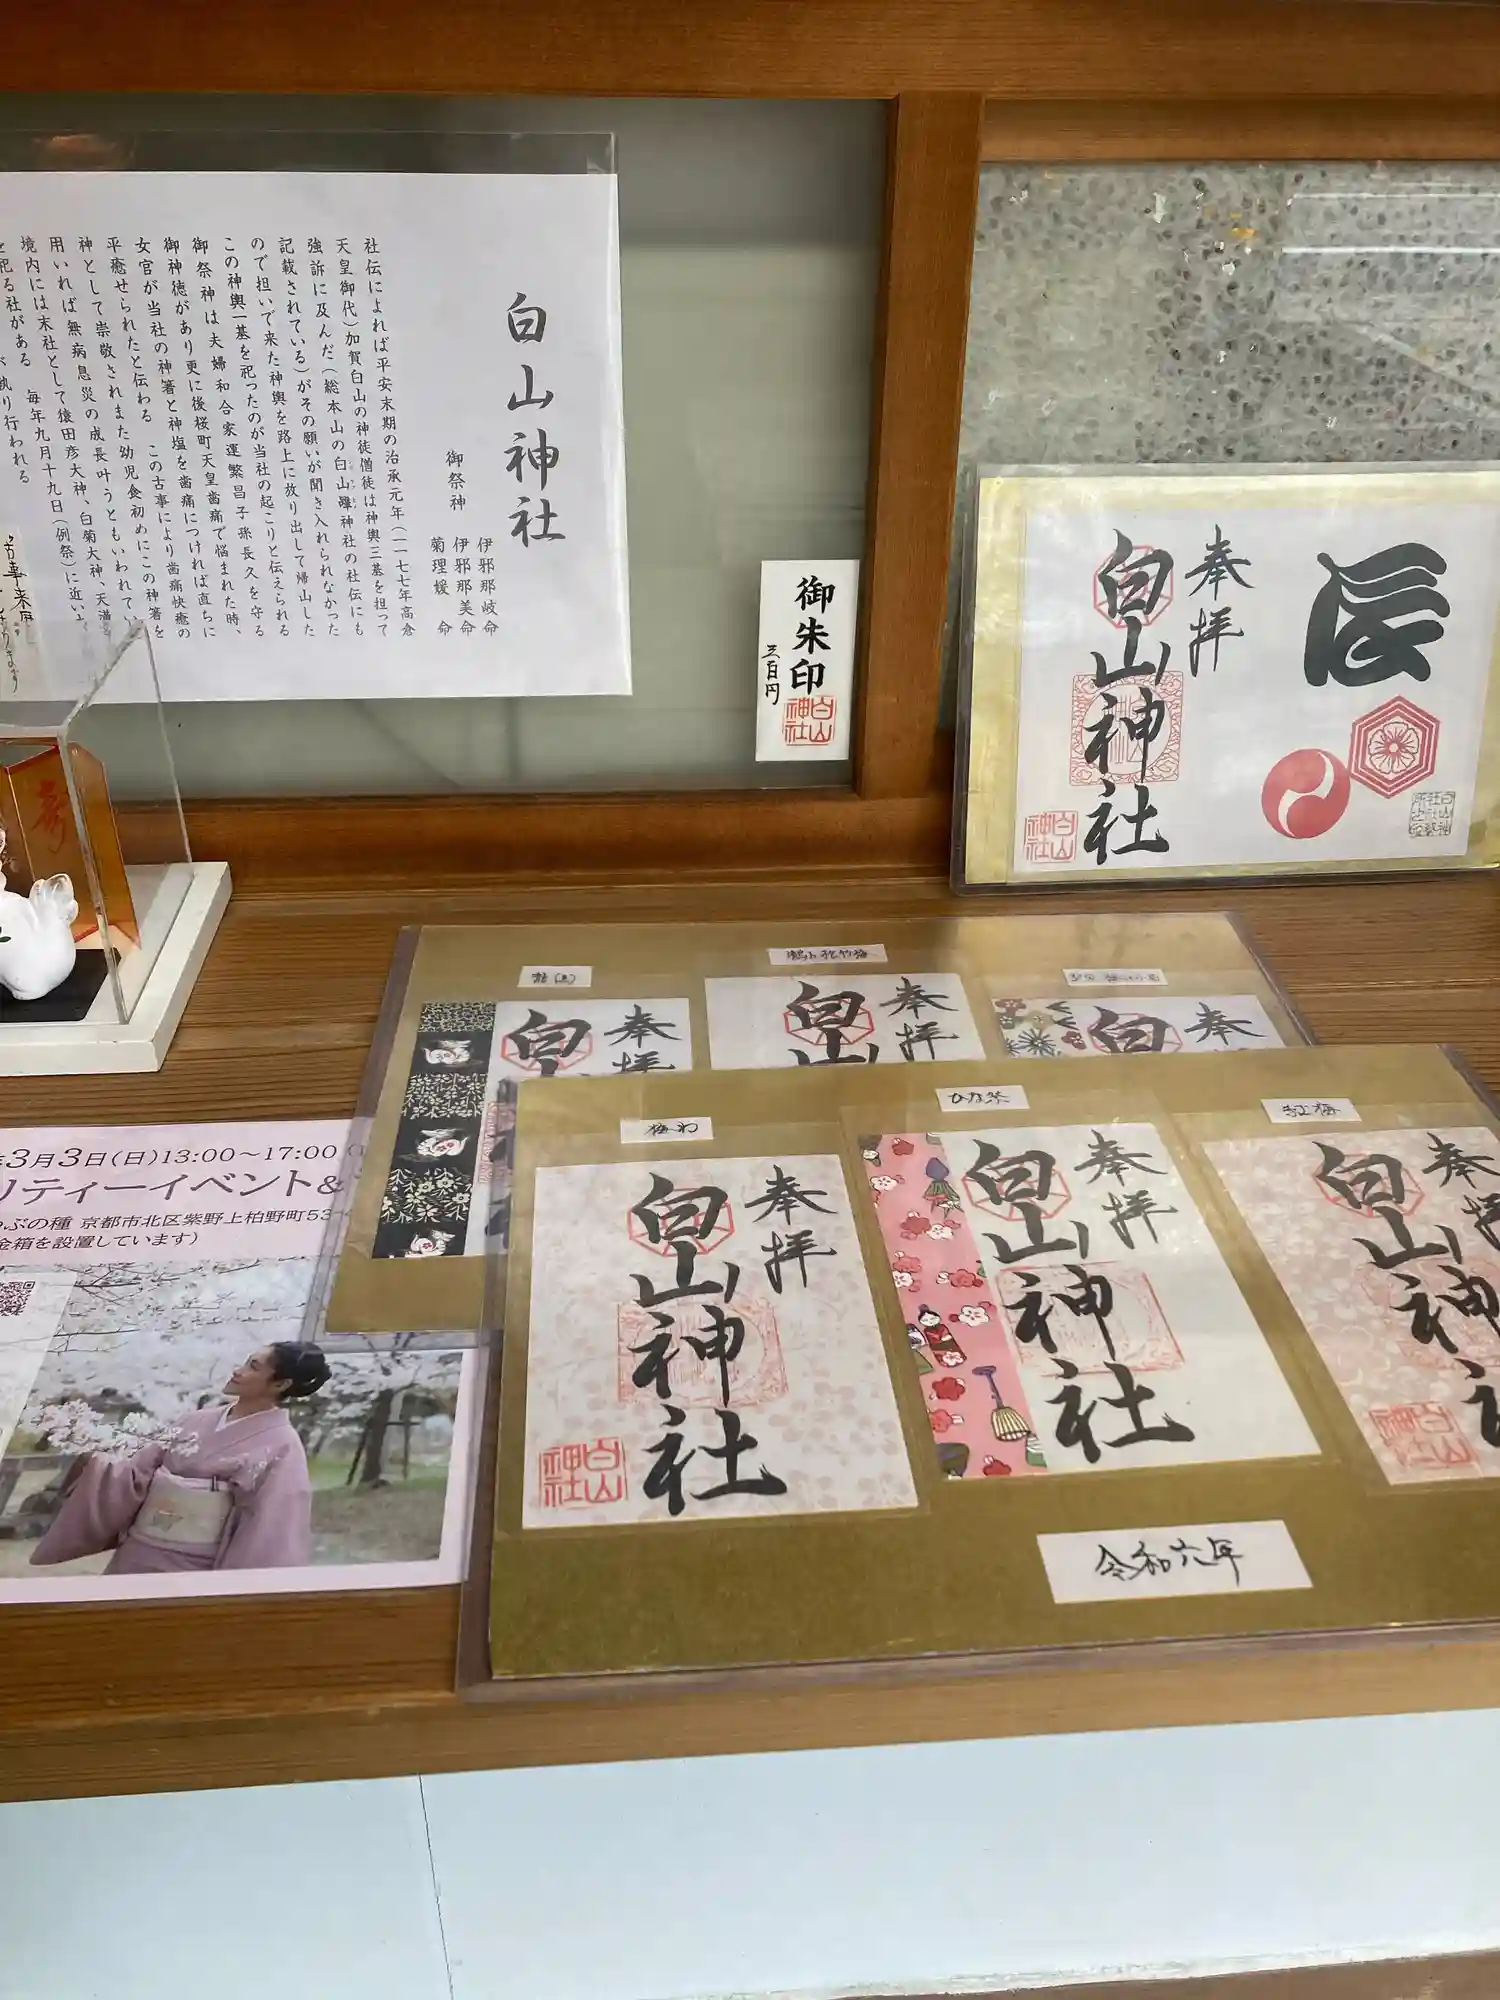 白山神社
御祭神
伊邪那岐命
伊邪那美命
菊理媛 命
社伝によれば平安末期の治承元年(一一七七年高倉
天皇御代)加賀白山の神徒僧徒は神輿三基を担って
強訴に及んだ(総本山の白山 神社の社伝にも
記載されている)がその願いが聞き入れられなかった
ので担いで来た神輿を路上に放り出して帰山した
この神輿一基を祀ったのが当社の起こりと伝えられる
御祭神は夫婦和合家運繁昌子孫長久を守る
御神徳があり更に後桜町天皇歯痛で悩まれた時、
女官が当社の神箸と神塩を歯痛につければ直ちに
平癒せられたと伝わる この古事により歯痛快癒の
神として崇敬されまた幼児食初めにこの神箸を
用いれば無病息災の成長叶うともいわれてい
境内には末社として猿田彦大神、白菊大神、天満
を祀る社がある 毎年九月十九日(例祭)に近い
が執り行われる
御朱印
三百円
白山神社
奉拝
白山神社
辰
白山神社
奉拝
白山
奉拝
白山
奉拝
白
梅わ
ひな祭
紅梅
奉拝
白山神社
白山神社
奉拝
白山神社
奉拝
白山神社
白山神社
令和六年
3月3日(日)13:00～17:00
リティーイベント&
ぶの種 京都市北区紫野上柏野町53
金箱を設置しています)
寿